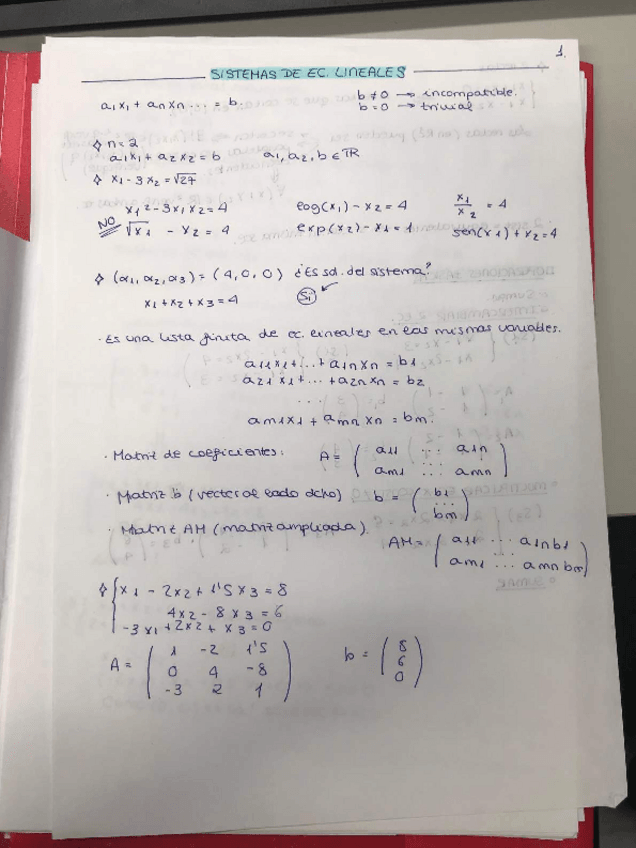 1.
SISTEMAS DE EC. LINEALES
a₁x₁ + anxn ... = b
b ≠ 0 → incompatible.
b = 0 → trivial
◊ n = 2
a₁x₁ + a₂x₂ = b a₁, a₂, b ∈ ℝ
◊ x₁ - 3x₂ = √27
x₁² - 3x₁x₂ = 4 log(x₁) - x₂ = 4 x₁/x₂ = 4
NO √x₁ - x₂ = 4 exp(x₂) - x₁ = 1 sen(x₁) + x₂ = 4
◊ (α₁, α₂, α₃) = (4, 0, 0) ¿Es sol. del sistema?
x₁ + x₂ + x₃ = 4 Sí
· Es una lista finita de ec. lineales en las mismas variables.
a₁₁x₁ + ... + a₁nxn = b₁
a₂₁x₁ + ... + a₂nxn = b₂
am₁x₁ + amnxn = bm.
· Matriz de coeficientes: A = ( a₁₁ ... a₁n
am₁ ... amn )
· Matriz b (vector al lado dcho) b = ( b₁
...
bm )
· Matriz AM (matriz ampliada). AM = ( a₁₁ ... a₁n b₁
am₁ ... amn bm )
◊ { x₁ - 2x₂ + 1'5x₃ = 8
4x₂ - 8x₃ = 6
-3x₁ + 2x₂ + x₃ = 0
A = ( 1 -2 1'5
0 4 -8
-3 2 1 )
b = ( 8
6
0 )